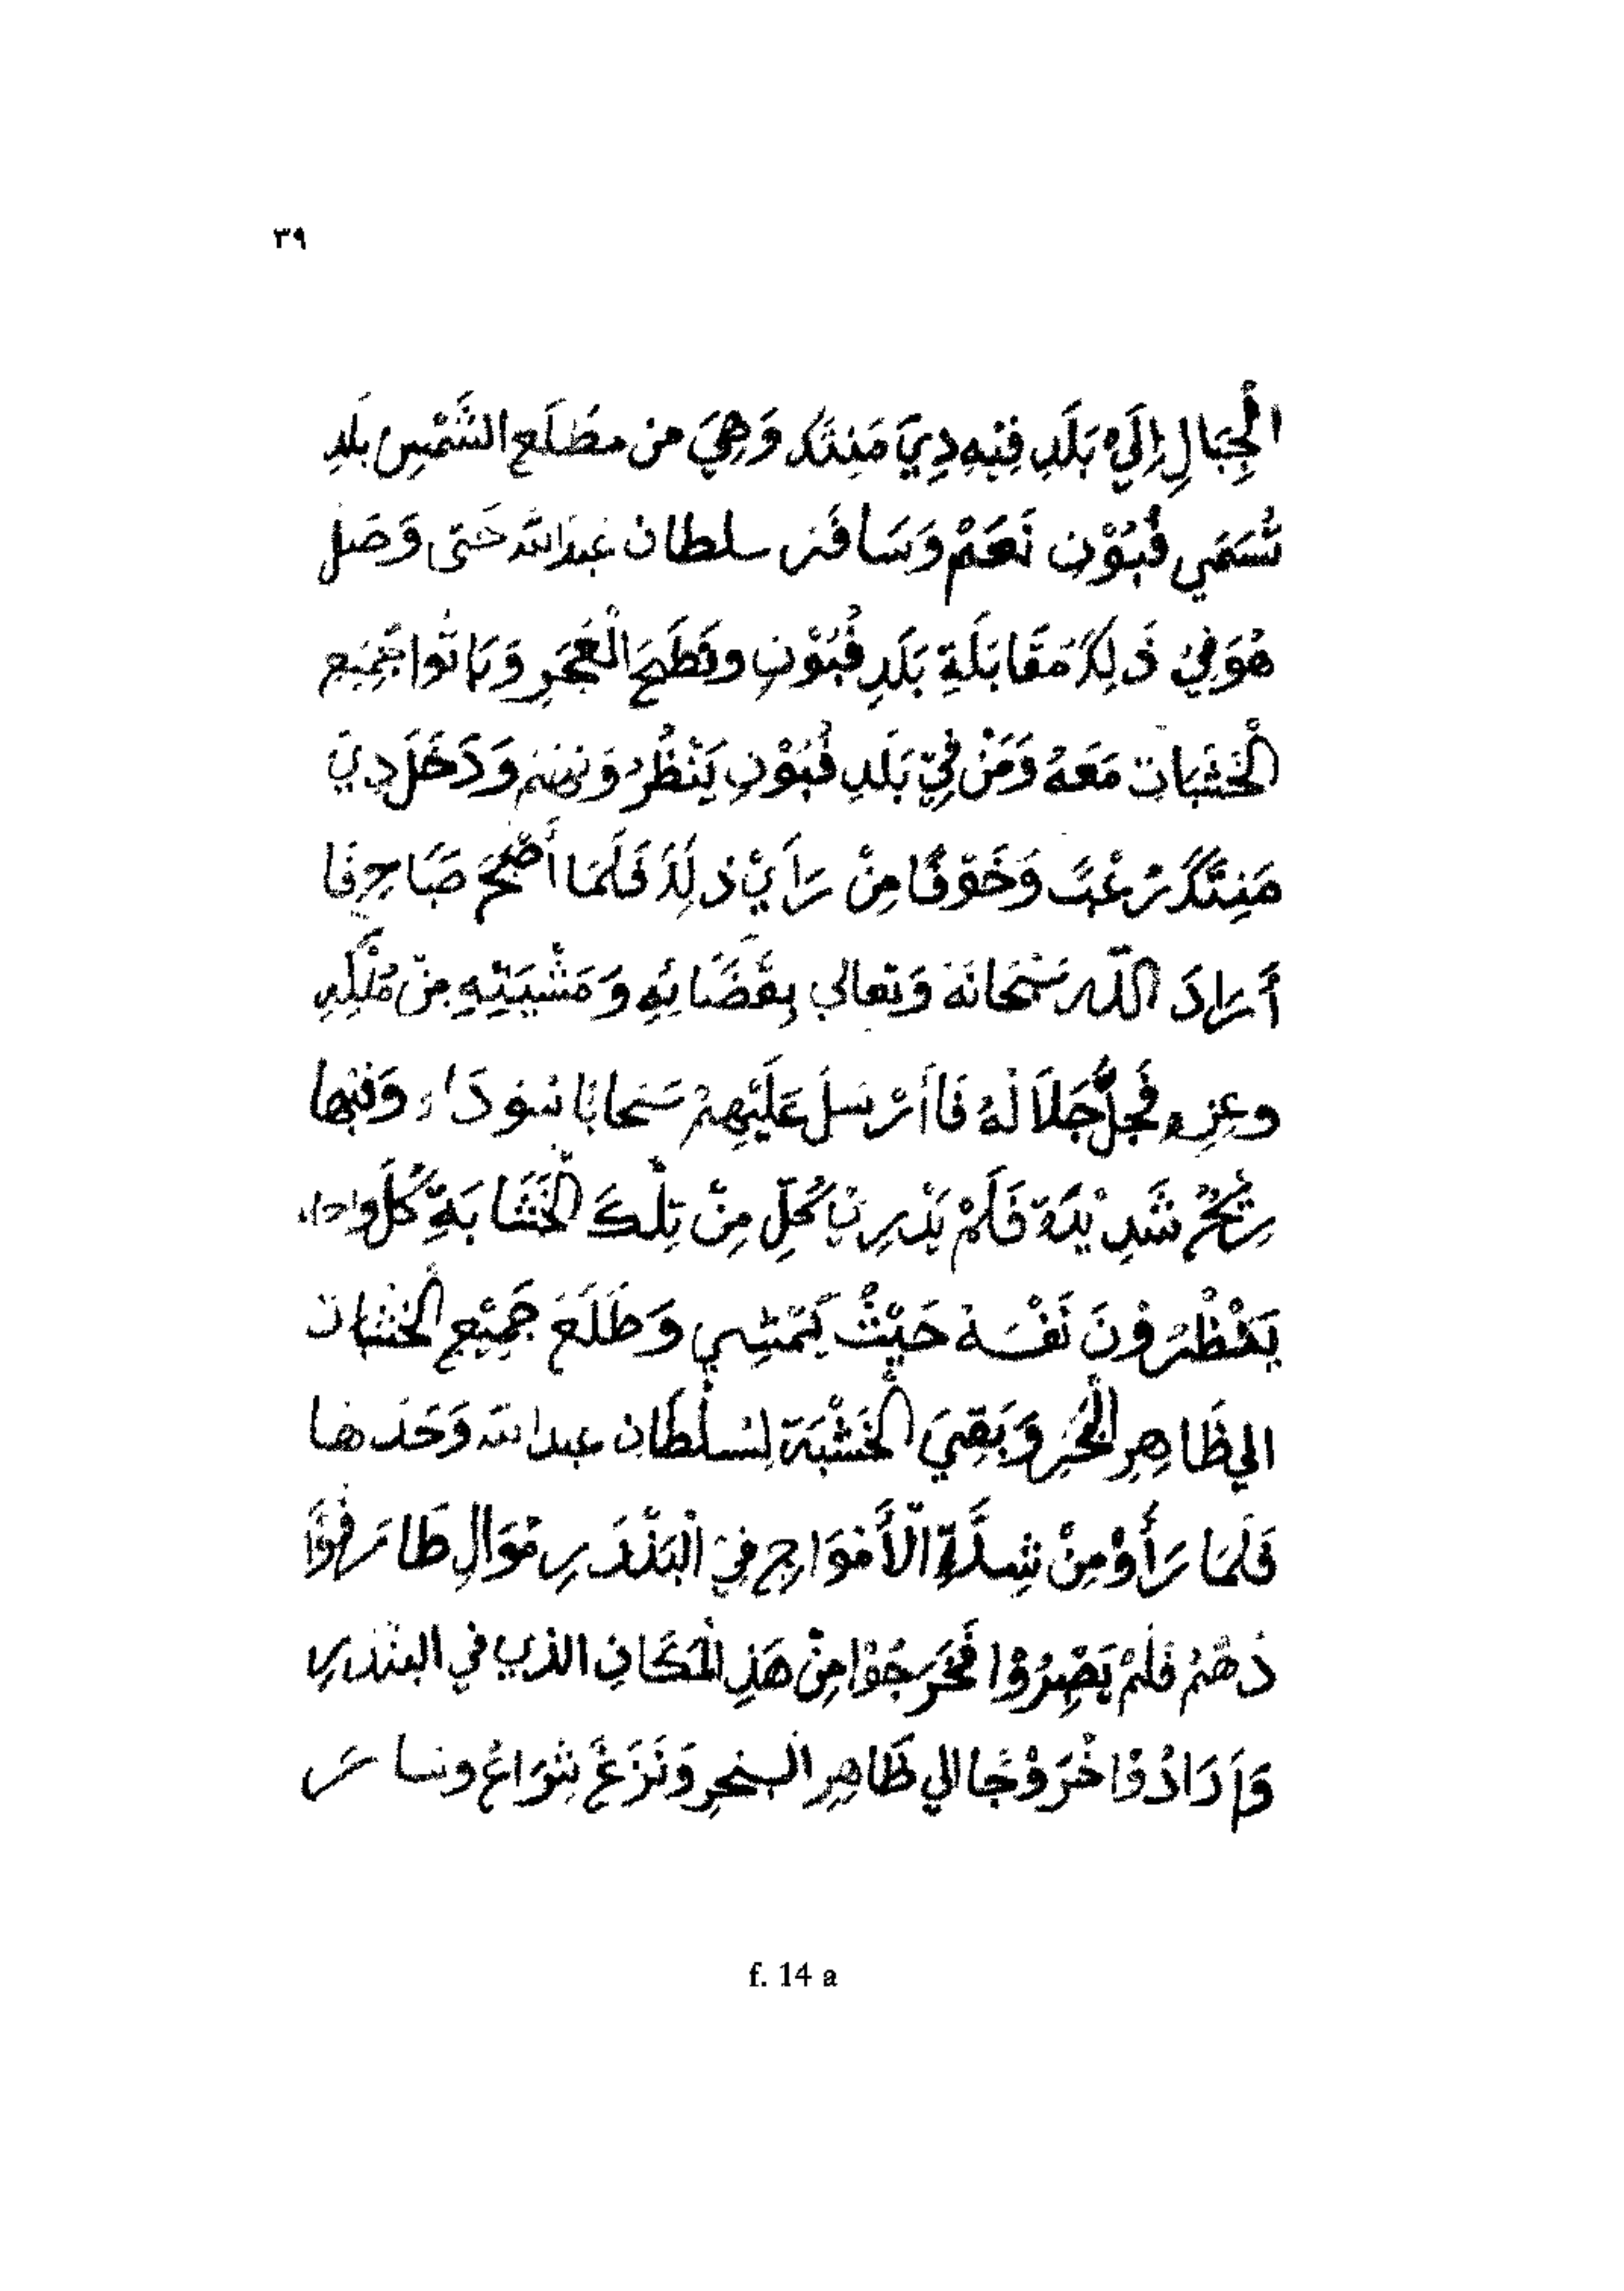 ٣٩
الْجِبَالِ إِلَيْ بَلَدِ فِيْهِ دِيَ مَنِتَكَ وَهِيَ من مطَلَع الشَّمْسِ بلَدِ
تُسَمَي فُبُوْنِ نَعَمْ وَسَافَرَ سلطان عَبدَاللَّه حَتى وَصَل
هُوَ فِيْ ذَلِكَ مَقَابَلَةِ بَلَدِ فُبُوْنِ وَبَاتُوا جَمِيَع
الْخَشَبَات مَعَهُ وَمَنْ فِيْ بَلَدِ فُبُوْنِ يَنْظُرُونَهُمْ وَدَخَلَ دِيَ
مَنِتَكَ رُعْبًا وَخَوْفًا مِنْ رَأَيْ ذلِكَ فَلَمَا أَصْبَحَ صَبَاحٍ فَا
أَرَادَ اللّه سُبْحَانَهُ وَتعالي بِقَضَائِهِ وَمَشْيَيَتِهِ مِنْ مُلْكِهِ
وعِزِهِ فَجَلَّ جَلَالَهُ فَاأَرْسَلَ عَلَيْهِمْ سَحابًا سَوْدَاء وَفيْها
رِيْحُ شَدِيْدَة فَلَمْ يَدْرِيْ كُلِ مِنْ تِلْكَ الْخَشَابَةِ كُلَ واحد
يَنْظُرُوْنَ نَفْسَهُ حَيْثُ يَمْشِي وَطَلَعَ جَمِيْعِ الْخَشَبات
الي ظَاهِرِ الْبَحْرِ وَبَقِيَ الْخَشْبَة لِسُلْطَان عبدالله وَحَدَها
فَلَمَا رَأَوْ مِنْ شِدَّةِ الْأَمْوَاجِ فِيْ الْبَنْدَرِ مُوَالِ
فَلَمْ يَصْبِرُوْا فَخَرَجُوْا مِنْ هَذِ الْمَكَانِ الذي في البَنْدَرِ
وَأَرَادُوْا خُرُوْجًا الي ظَاهِرِ الْبَحْرِ وَنَزَعَ شِرَاعْ وسارَ
f. 14 a